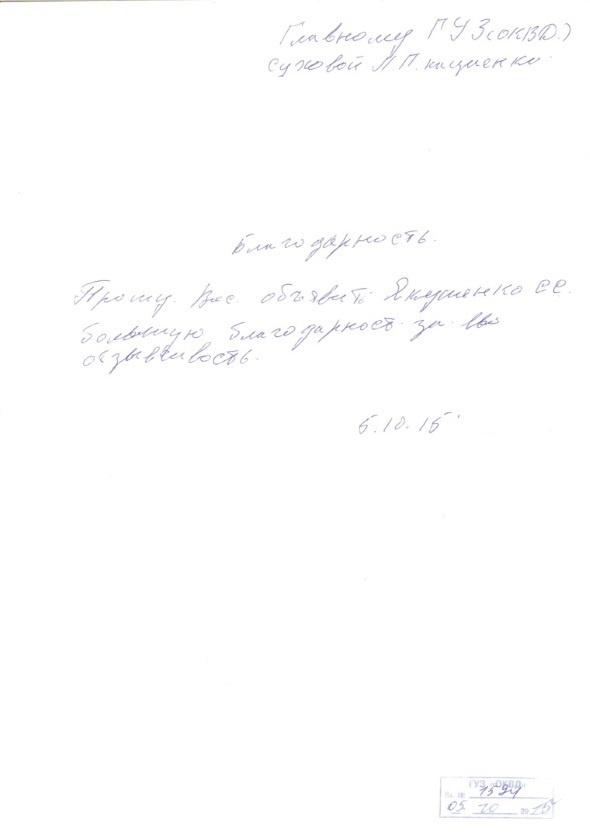 Главному ГУЗ(ОКВД.)
Суховой Л П.
Благодарность.
Прошу. Вас. объявить Якушенко СС.
большую благодарност за
отзывчивость.
5.10.15
ГУЗ «ОКВД»
Вх. № 1594
05 10 2015